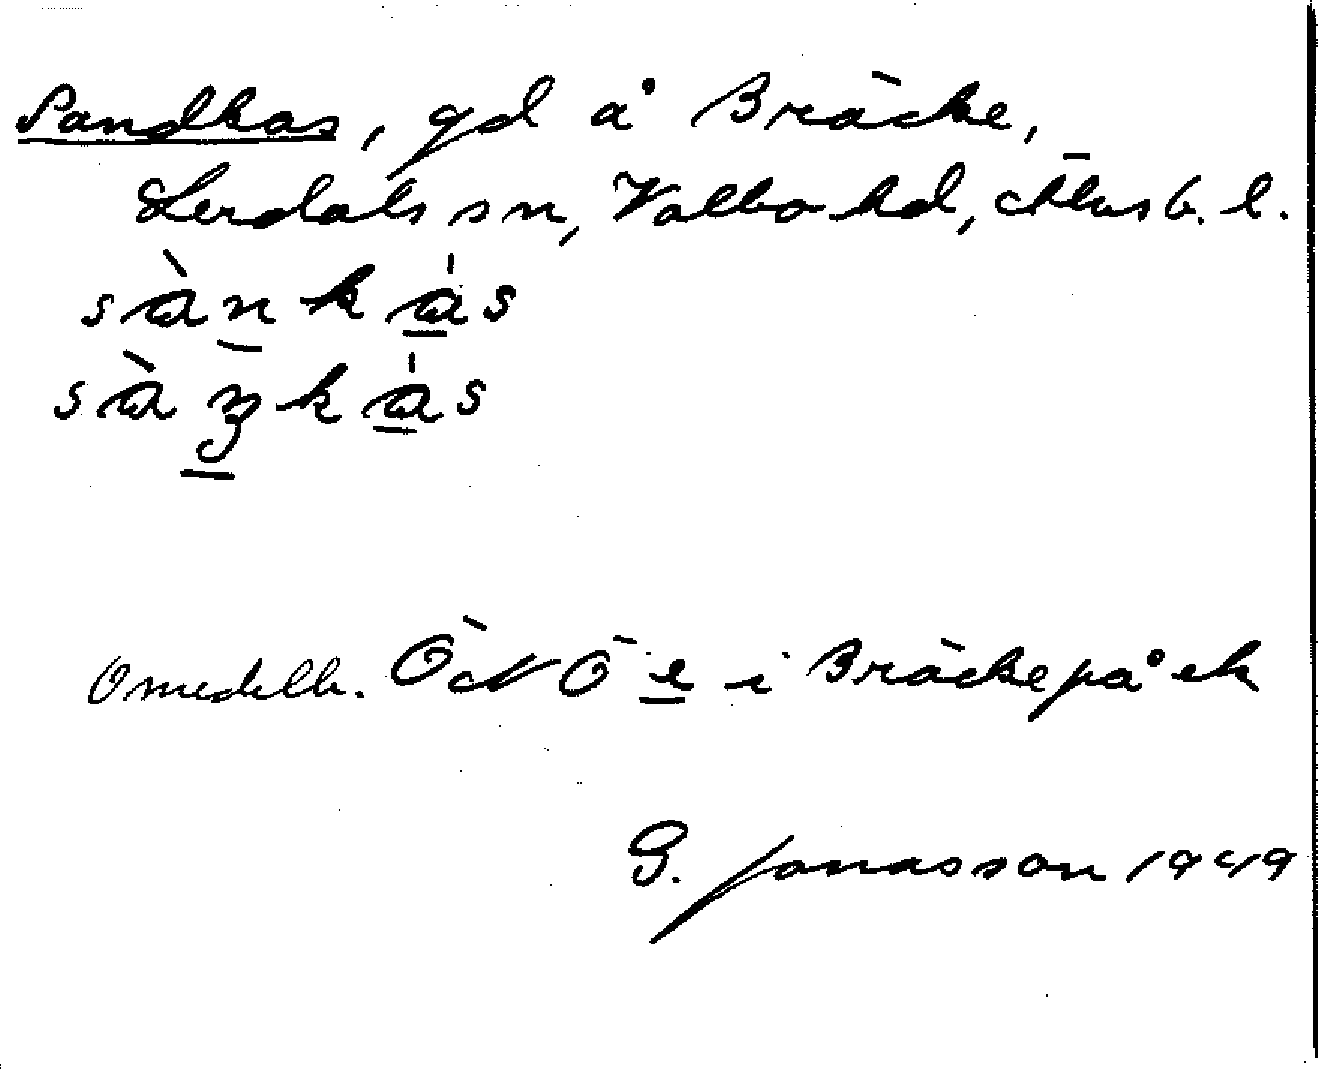 Sandkas, gd å Bräcke,
Lerdals sn, Valbo hd, Älvsb. l.
sànkás
sàŋkás
Omedelb. ÖNÖ e i Bräcke på ek
G. Jonasson 1949